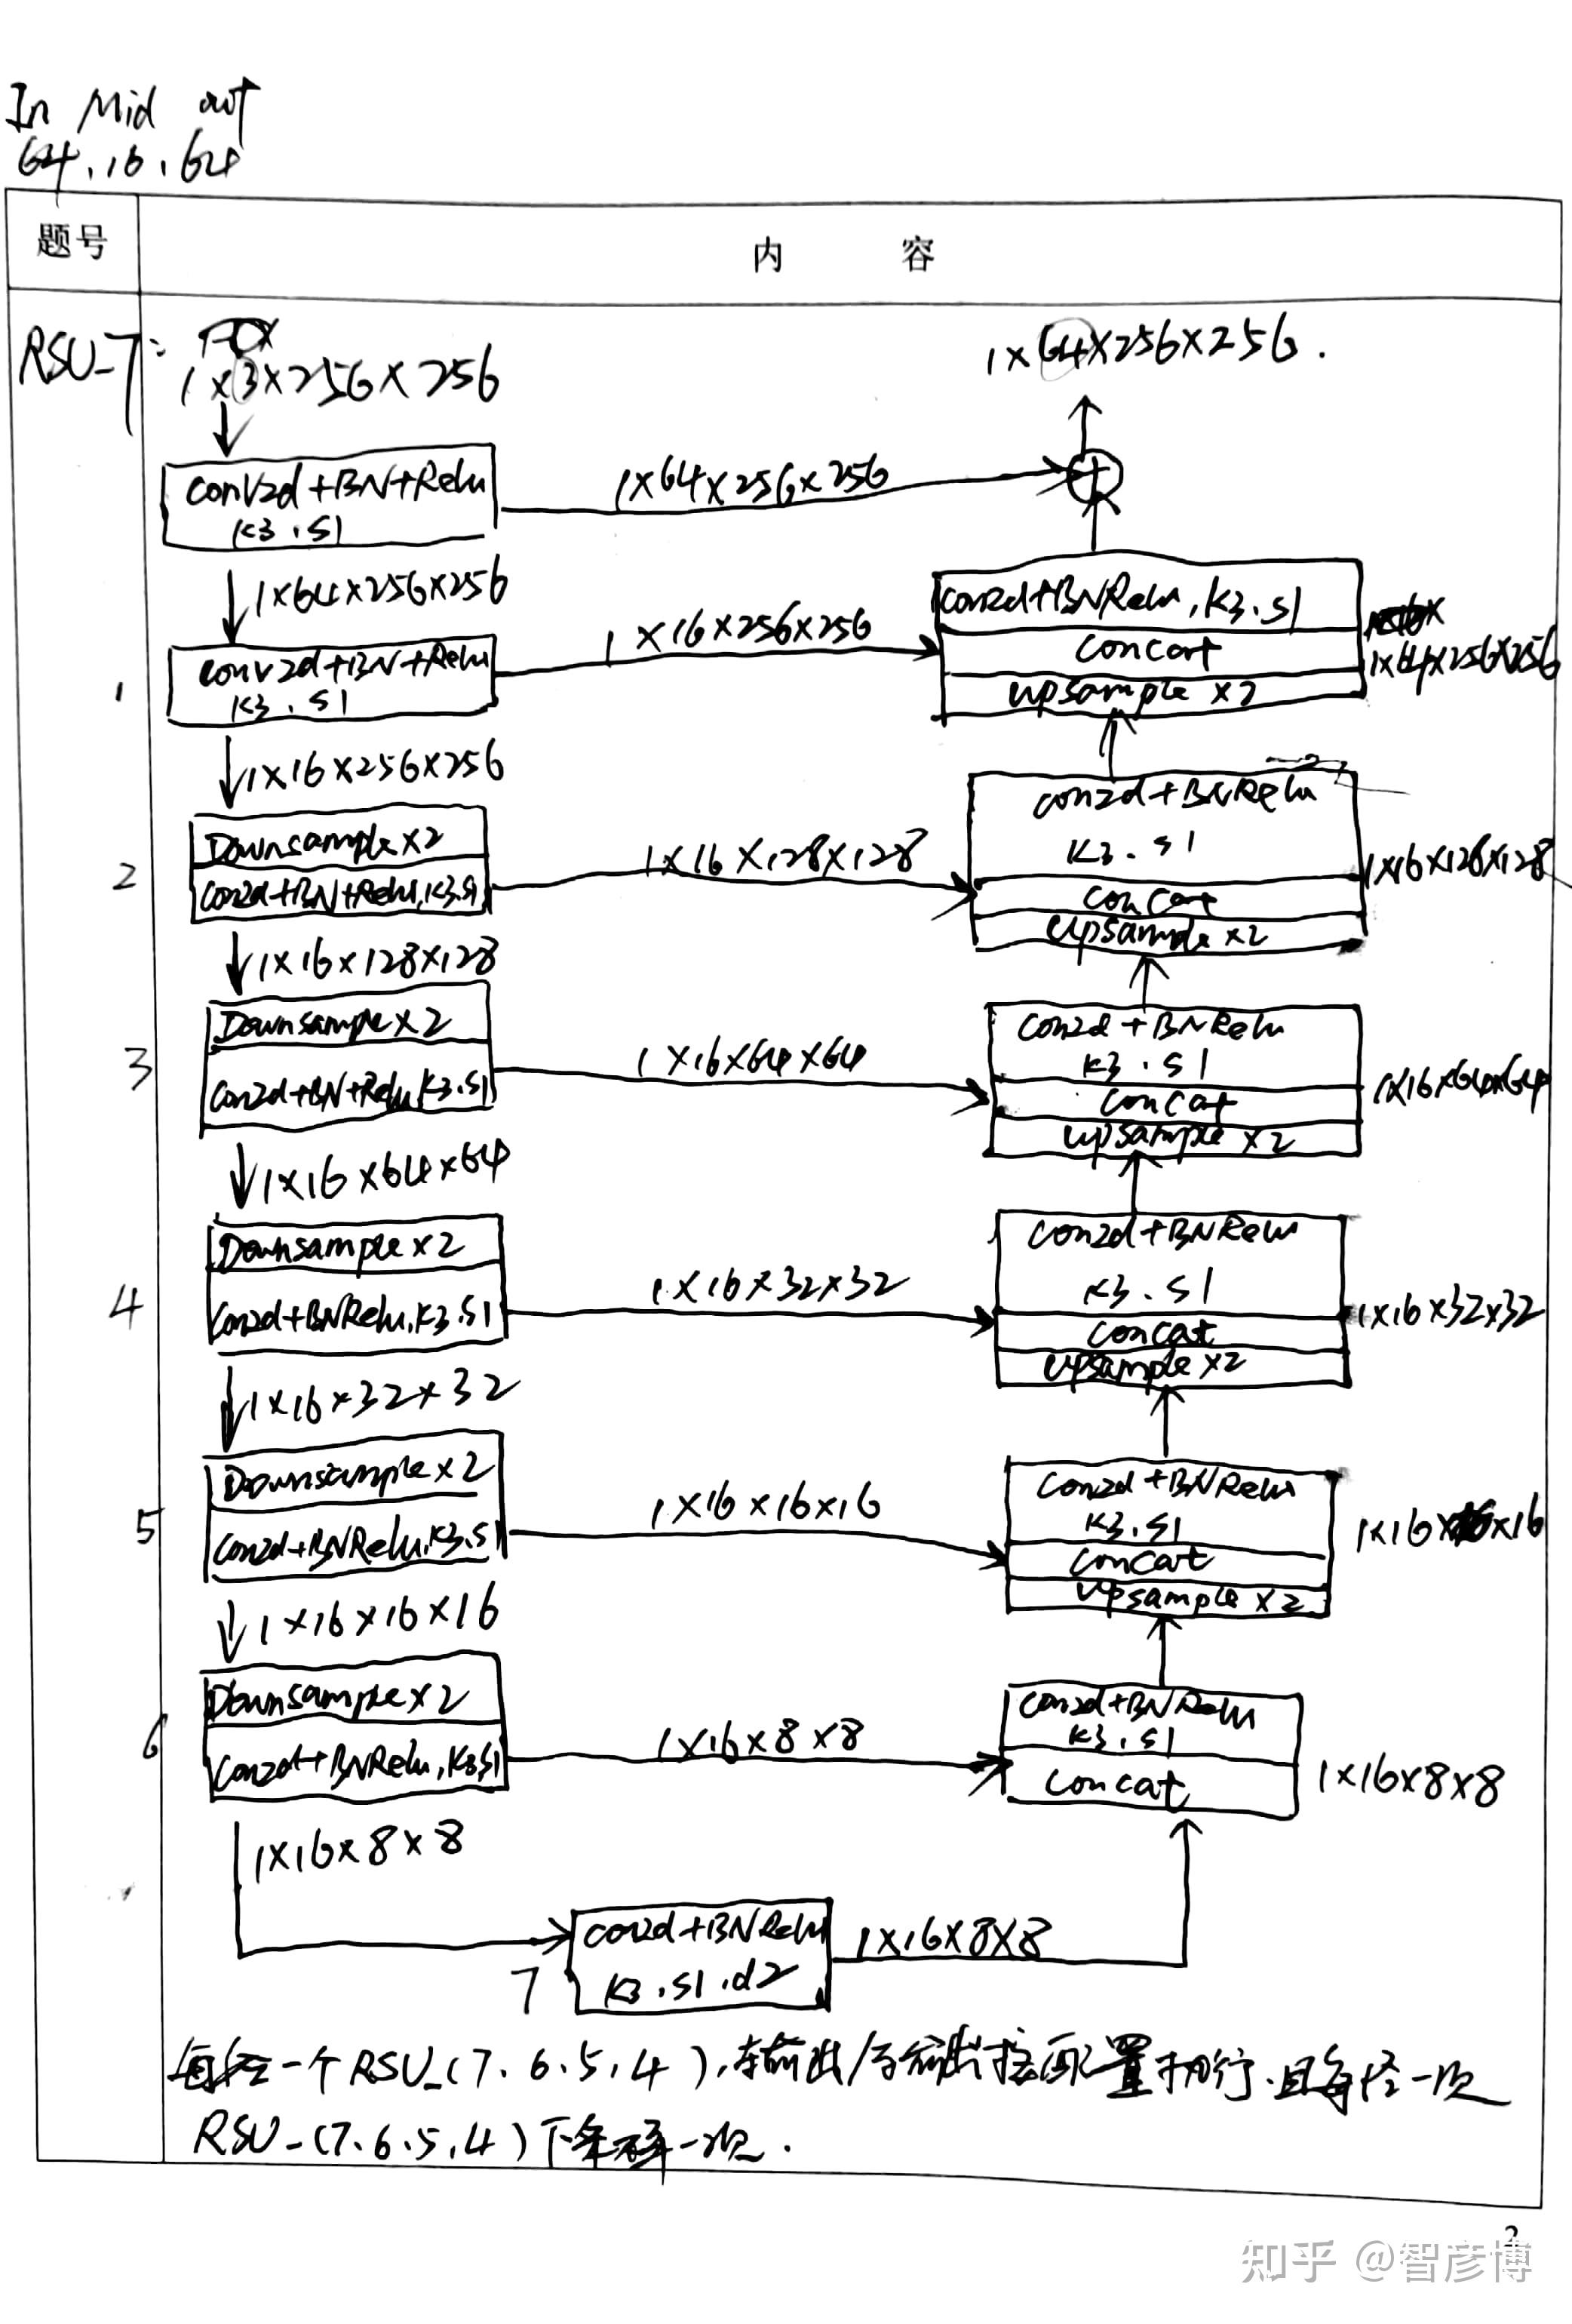 In Mid out
64.16.64
题号
内 容
RSU-7:
1×3×256×256
1×64×256×256.
Conv2d+BN+Relu
K3.S1
1×64×256×256
1×64×256×256
Conv2d+BN+Relu
K3.S1
1×16×256×256
Con2d+BNRelu,K3.S1
Concat
upsample ×2
1×64×256×256
1
1×16×256×256
Downsample×2
Con2d+BN+Relu,K3.S1
1×16×128×128
Con2d+BNRelu
K3.S1
Concat
upsample ×2
1×16×128×128
2
1×16×128×128
Downsample×2
Con2d+BN+Relu,K3.S1
1×16×64×64
Con2d+BNRelu
K3.S1
Concat
upsample ×2
1×16×64×64
3
1×16×64×64
Downsample×2
Con2d+BNRelu,K3.S1
1×16×32×32
Con2d+BNRelu
K3.S1
Concat
upsample ×2
1×16×32×32
4
1×16×32×32
Downsample×2
Con2d+BNRelu,K3.S1
1×16×16×16
Con2d+BNRelu
K3.S1
Concat
upsample ×2
1×16×16×16
5
1×16×16×16
Downsample×2
Con2d+BNRelu,K3,S1
1×16×8×8
Con2d+BNRelu
K3.S1
Concat
1×16×8×8
6
1×16×8×8
Con2d+BNRelu
K3.S1.d2
1×16×8×8
7
一个RSU_(7.6.5.4),输出/与输出按配置执行.且每经一次
RSU_(7.6.5.4)下采样一次.
2
知乎 @智彦博